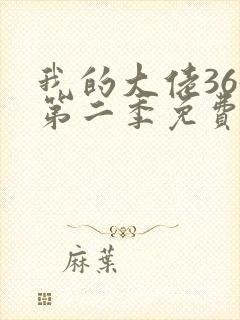 我的大佬36
第二季免費
麻葉